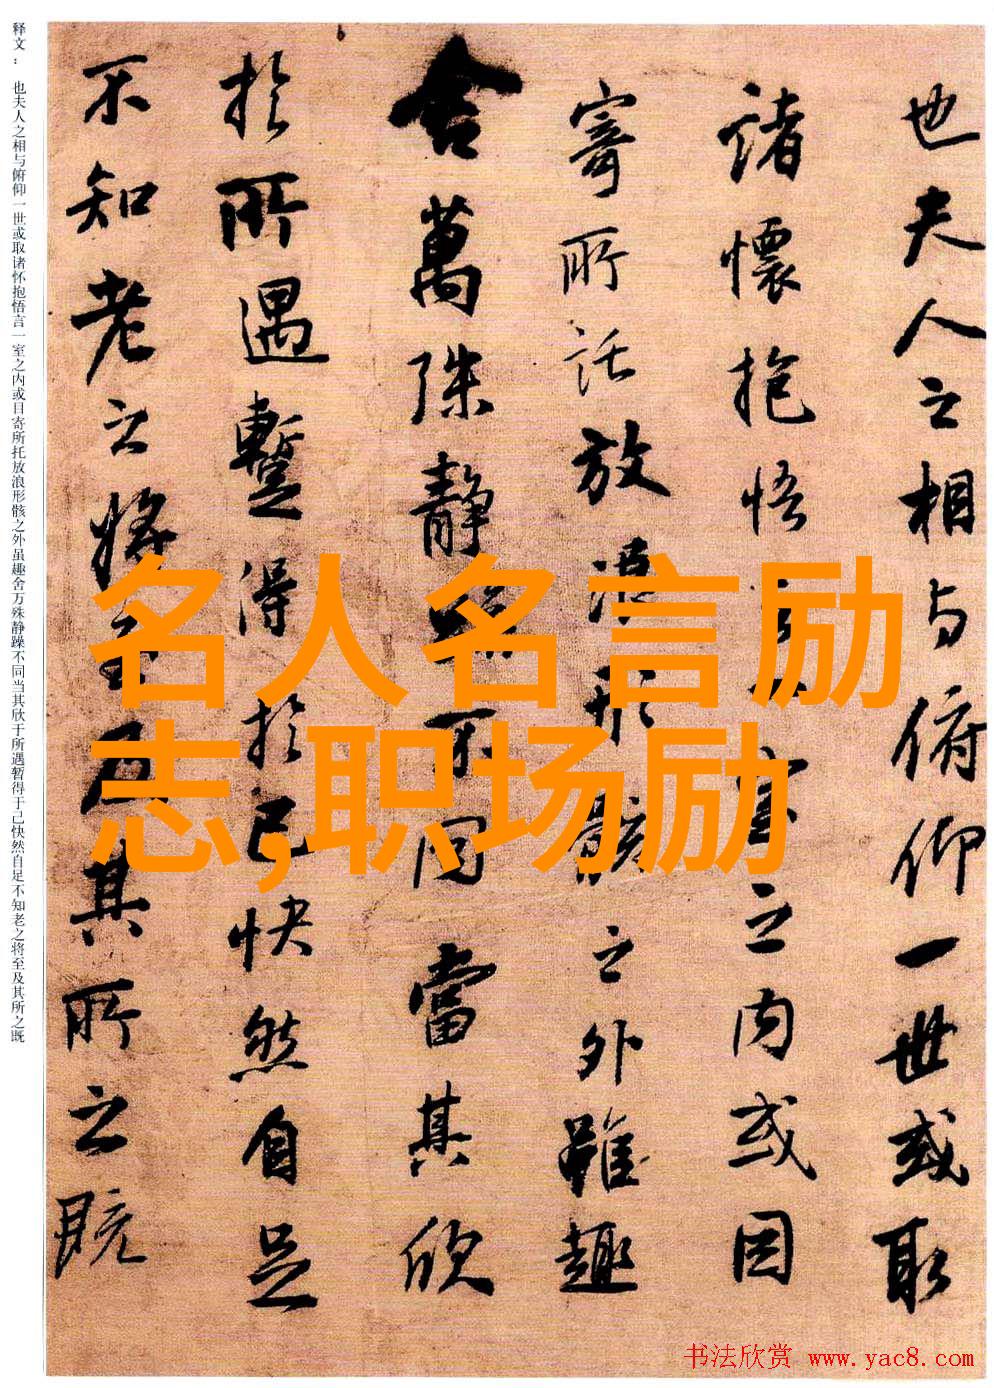 也夫人之相与俯仰一世或取
諸懷抱悟室之内或因
寄所託放浪形骸之外雖趣
舍萬殊静不同當其欣
於所遇蹔得於己快然自足
不知老之将至及其所之既
释文： 也夫人之相与俯仰一世或取诸怀抱悟言一室之内或目寄所托放浪形骸之外虽趣舍万殊静躁不同当其欣于所遇暂得于己快然自足不知老之将至及其所之既
名人名言励
志,职场励
书法欣赏 www.yac8.com